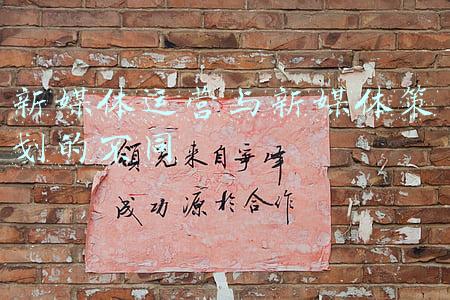 新媒体运营与新媒体策
划的不同
领先来自争峰
成功源于合作